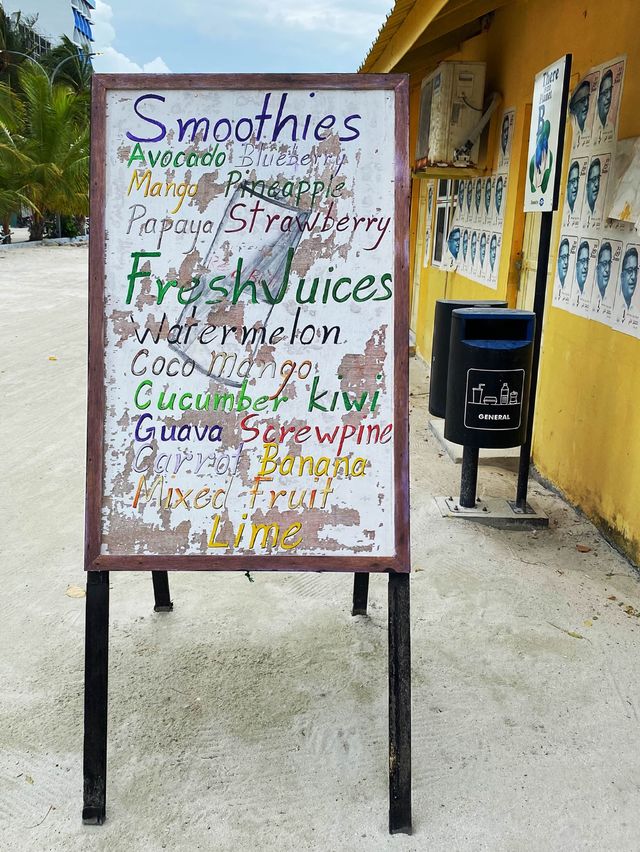 Smoothies
Avocado Blueberry
Mango Pineapple
Papaya Strawberry
Fresh Juices
Watermelon
Coco Mango
Cucumber kiwi
Guava Screwpine
Carrot Banana
Mixed Fruit
Lime
There
B
GENERAL